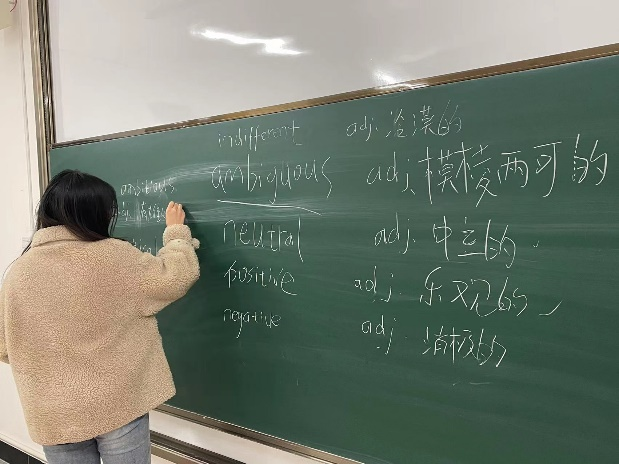 indifferent adj. 冷漠的
ambiguous adj. 模棱两可的
neutral adj. 中立的.
positive adj. 乐观的
negative adj. 消极的
ambitious